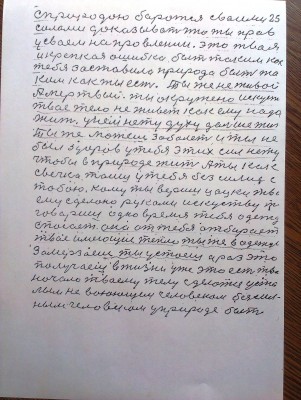 с природою борются своими 25
силами доказывает что ты прав
у своем направлении. Это твоя
и крепкая ошибка быть таким как
тебя заставило природа быть та
ким как ты есть. Ты же не живой
А мертвый. ты окружено искуст
твое тело не живет как ему надо
жить. у нем нету духу дальше жит
Ты же можеш заболет и ты не
был у тебя этих сил нету
чтобы в природе жит А ты как
свечка таиш у тебя без силиц с
тобою. Кому ты вериш
ему сделано руками искуству ты
говориш одно время тебя одежд
спасает. она от тебя отбирает
твое имеющие тепло ты же в одежде
Замерзаеш ты устаеш а раз это
получаеш в жизни уже это есть тво
начало твоему телу сделатся уста
лым не воюющем человеком бессил-
ным человеком у природе быть